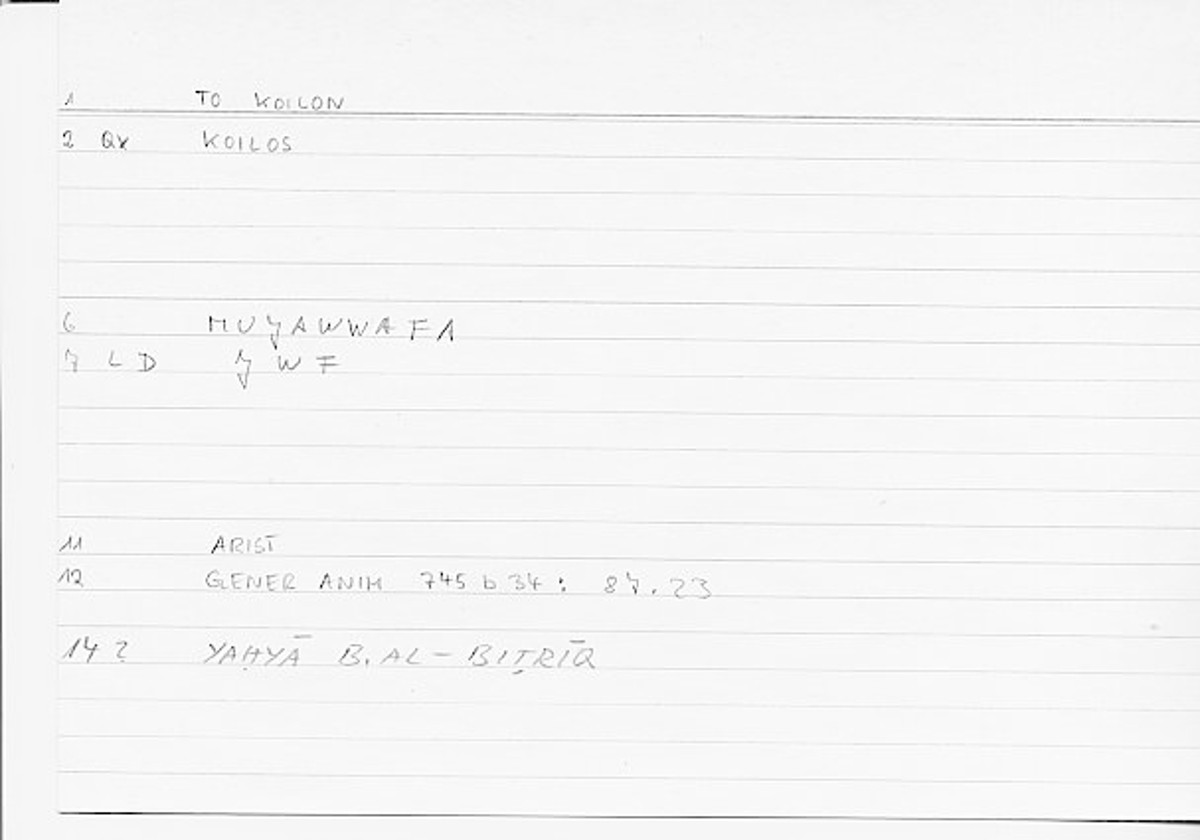 1 TO KOILON
2 Qx KOILOS
6 MUǧAWWAFA
7 LD ǧWF
11 ARIST
12 GENER ANIM 745 b 34 : 87.23
14 2 YAḤYĀ B. AL-BIṬRĪQ